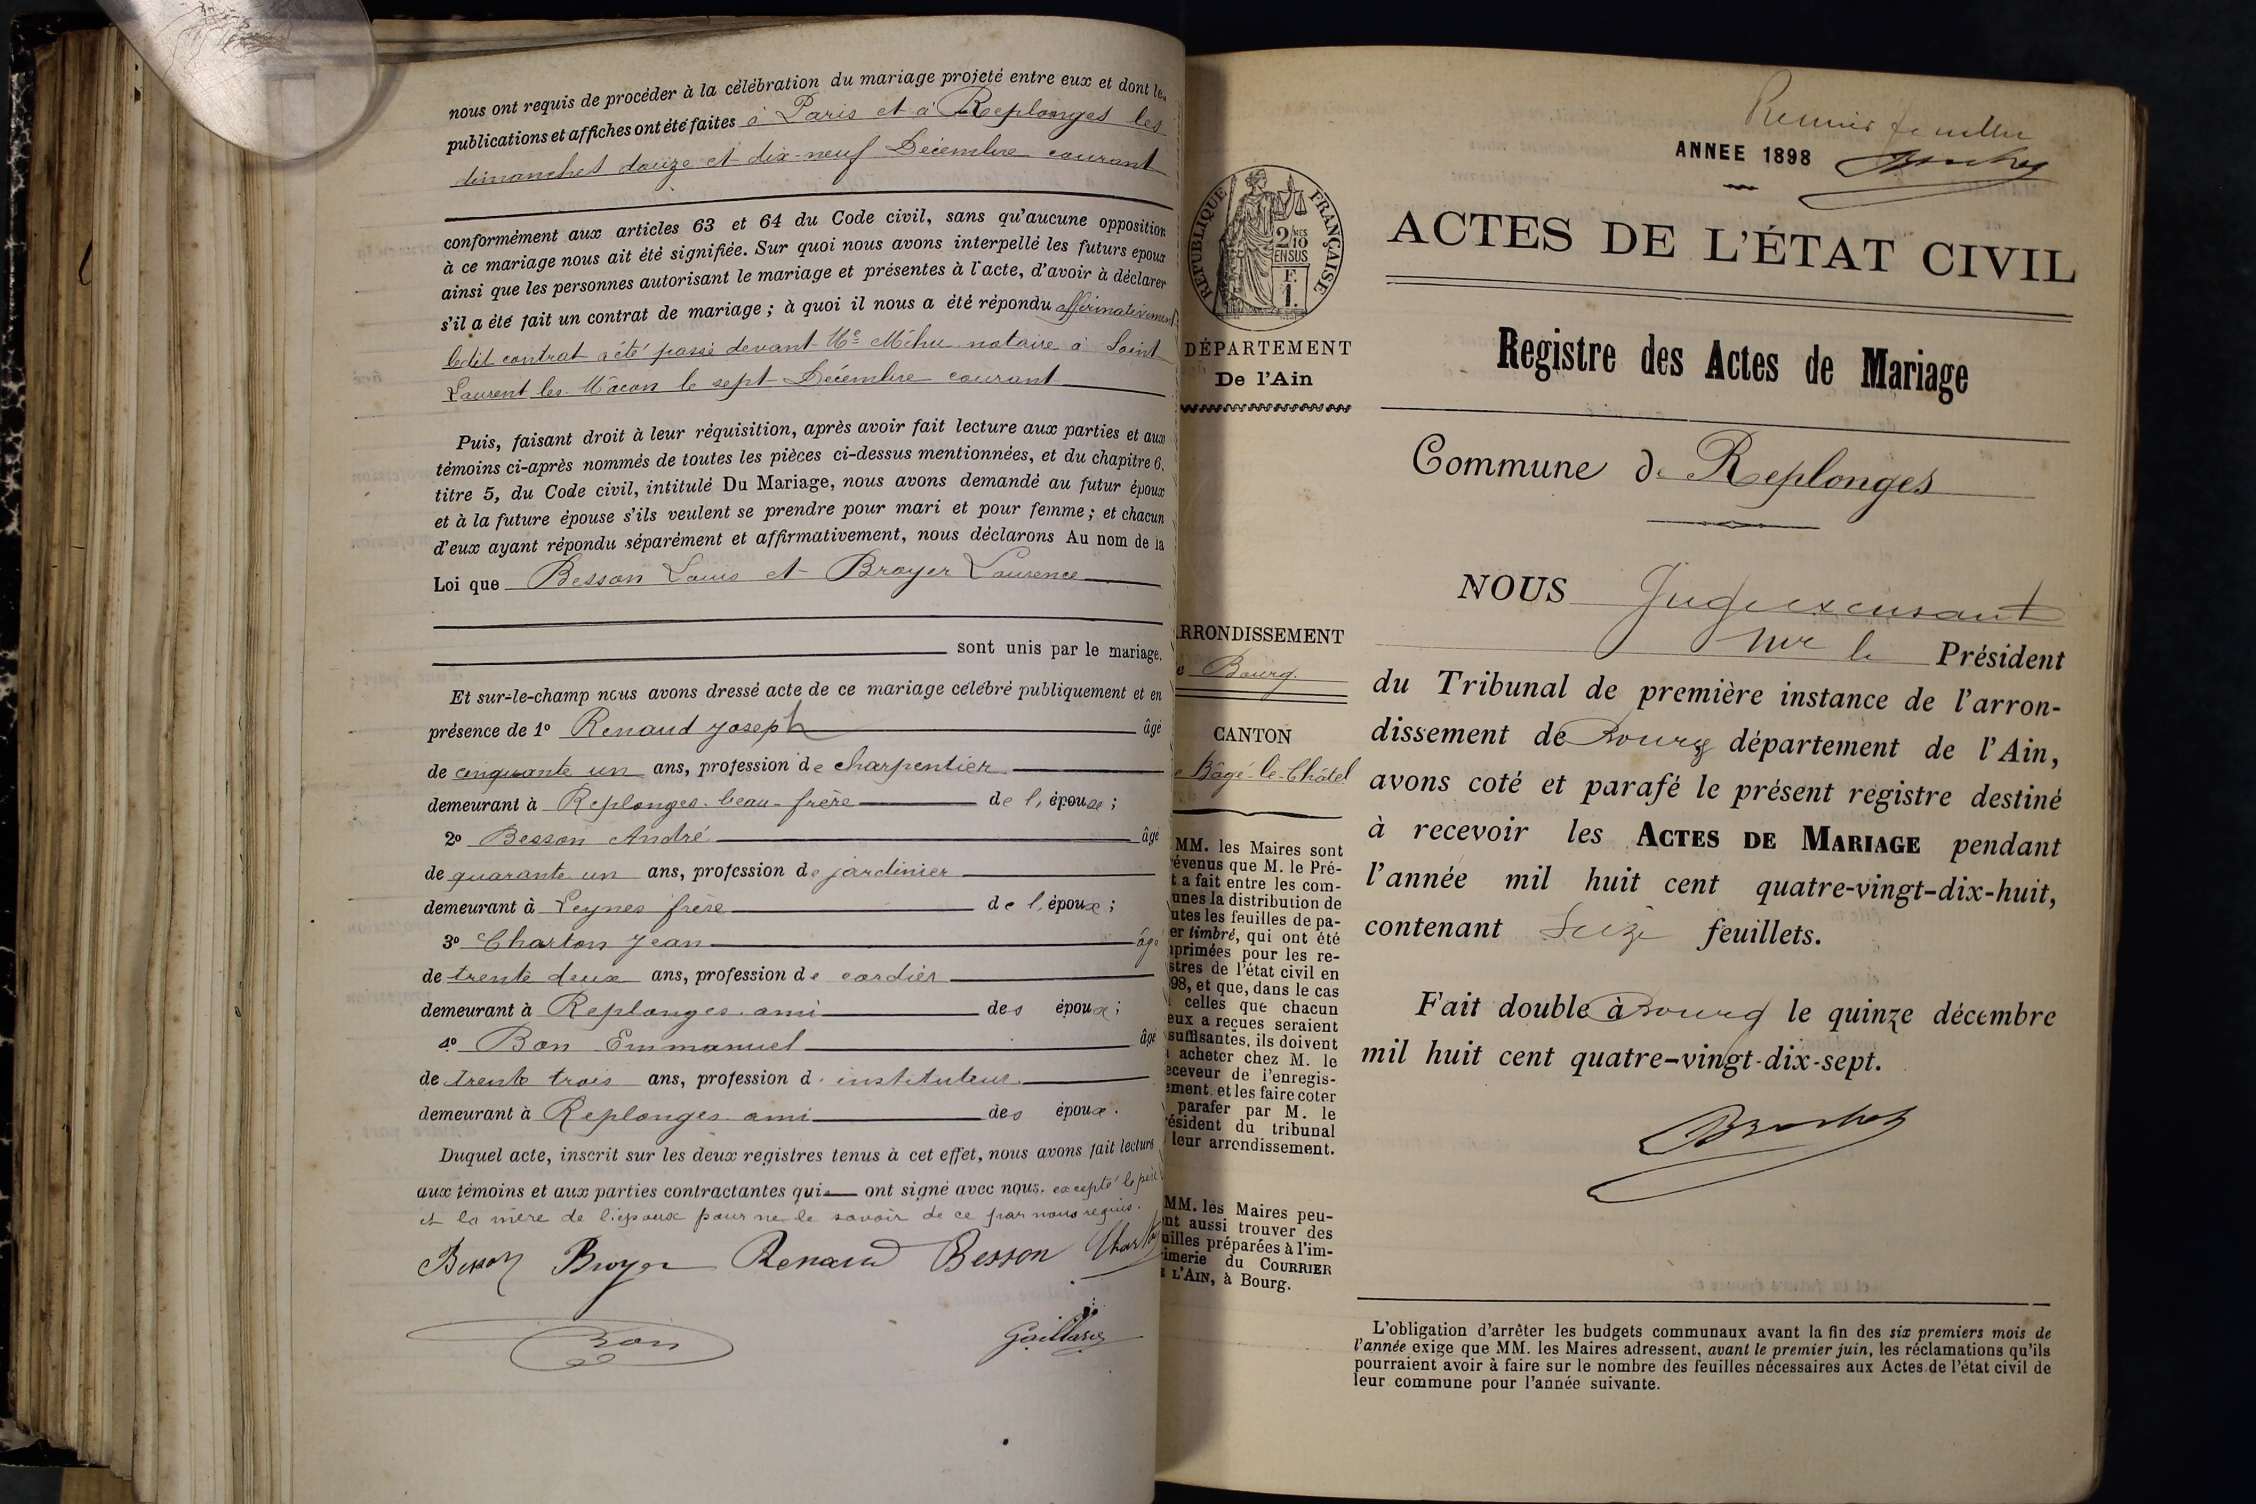 nous ont requis de procéder à la célébration du mariage projeté entre eux et dont les
publications et affiches ont été faites à Paris et à Replonges les
dimanches douze et dix-neuf Décembre courant
conformément aux articles 63 et 64 du Code civil, sans qu'aucune opposition
à ce mariage nous ait été signifiée. Sur quoi nous avons interpellé les futurs epoux
ainsi que les personnes autorisant le mariage et présentes à l'acte, d'avoir à déclarer
s'il a été fait un contrat de mariage ; à quoi il nous a été répondu affirmativement
ledit contrat a été passé devant Me Méhu notaire à Saint
Laurent les Mâcon le sept Décembre courant
Puis, faisant droit à leur réquisition, après avoir fait lecture aux parties et aux
témoins ci-après nommés de toutes les pièces ci-dessus mentionnées, et du chapitre 6,
titre 5, du Code civil, intitulé Du Mariage, nous avons demandé au futur époux
et à la future épouse s'ils veulent se prendre pour mari et pour femme ; et chacun
d'eux ayant répondu séparément et affirmativement, nous déclarons Au nom de la
Loi que Besson Louis et Broyer Laurence
sont unis par le mariage.
Et sur-le-champ nous avons dressé acte de ce mariage célébré publiquement et en
présence de 1o Renaud Joseph âgé
de cinquante un ans, profession de charpentier
demeurant à Replonges beau-frère de l'épouse ;
2o Besson André âgé
de quarante un ans, profession de jardinier
demeurant à Leynes frère de l'époux ;
3o Charton Jean âgé
de trente deux ans, profession de cordier
demeurant à Replonges ami des époux ;
4o Bon Emmanuel âgé
de trente trois ans, profession d'instituteur
demeurant à Replonges ami des époux.
Duquel acte, inscrit sur les deux registres tenus à cet effet, nous avons fait lecture
aux témoins et aux parties contractantes qui ont signé avec nous. excepté le père
et la mère de l'époux pour ne le savoir de ce par nous requis.
Besson Broyer Renaud Besson Charton
Bon Gaillard
Premier feuillet
ANNEE 1898
RÉPUBLIQUE FRANÇAISE
2/10 MES
EN SUS
F.
1.
ACTES DE L'ÉTAT CIVIL
DÉPARTEMENT
De l'Ain
Registre des Actes de Mariage
Commune de Replonges
ARRONDISSEMENT
Bourg
CANTON
Bâgé-le-Châtel
MM. les Maires sont
évenus que M. le Pré-
t a fait entre les com-
unes la distribution de
utes les feuilles de pa-
er timbré, qui ont été
primées pour les re-
stres de l'état civil en
98, et que, dans le cas
celles que chacun
eux a reçues seraient
suffisantes, ils doivent
acheter chez M. le
eceveur de l'enregis-
ement et les faire coter
parafer par M. le
ésident du tribunal
leur arrondissement.
MM. les Maires peu-
nt aussi trouver des
uilles préparées à l'im-
imerie du COURRIER
L'AIN, à Bourg.
NOUS Juge
le Président
du Tribunal de première instance de l'arron-
dissement de Bourg département de l'Ain,
avons coté et parafé le présent registre destiné
à recevoir les ACTES DE MARIAGE pendant
l'année mil huit cent quatre-vingt-dix-huit,
contenant Seize feuillets.
Fait double à Bourg le quinze décembre
mil huit cent quatre-vingt-dix-sept.
L'obligation d'arrêter les budgets communaux avant la fin des six premiers mois de
l'année exige que MM. les Maires adressent, avant le premier juin, les réclamations qu'ils
pourraient avoir à faire sur le nombre des feuilles nécessaires aux Actes de l'état civil de
leur commune pour l'année suivante.